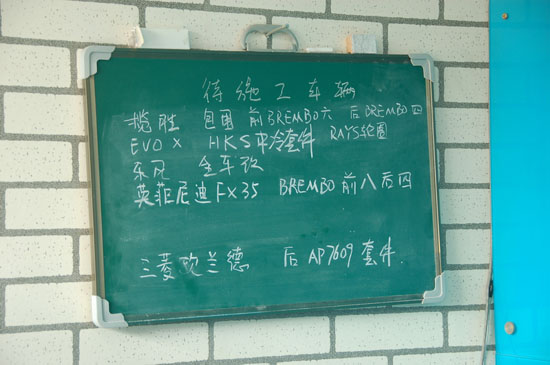 待施工车辆
揽胜 包围 前BREMBO六 后BREMBO四
EVO X HKS中冷套件 RAYS轮圈
东风 全车改
英菲尼迪FX35 BREMBO前八后四
三菱欧兰德 后AP7609套件